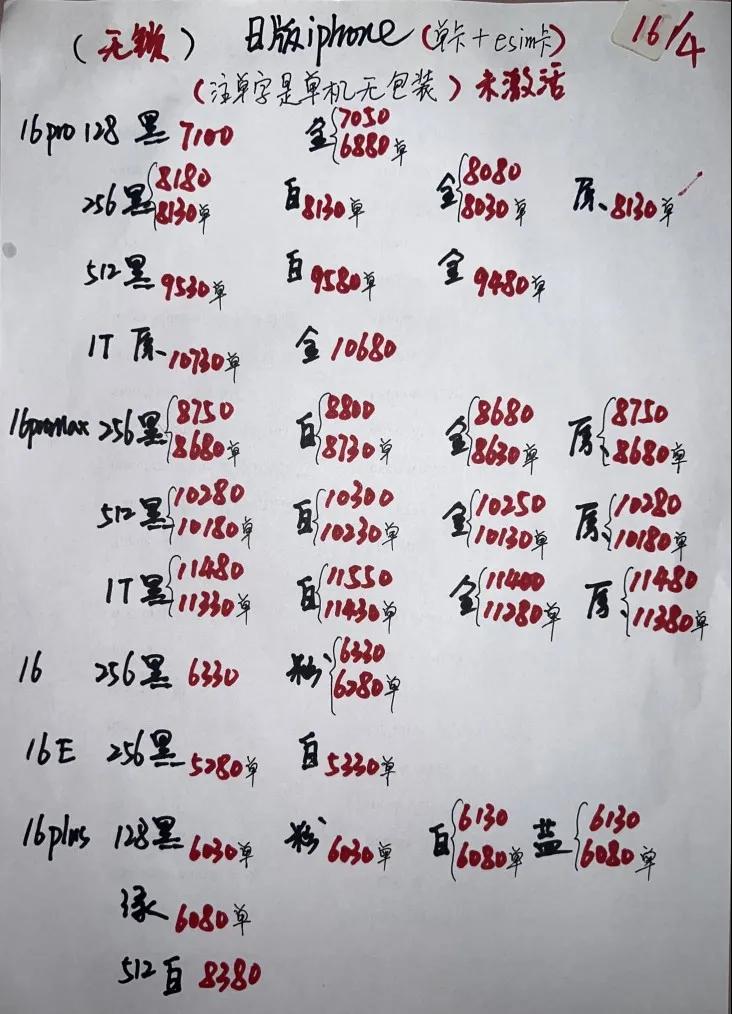 （无锁） 日版iphone（单卡+esim卡） 16/4
（注单字是单机无包装）未激活
16pro 128 黑 7100 金{7050 6880单
256 黑{8180 8130单 白 8130单 金{8080 8030单 原、8130单
512 黑 9530单 白 9580单 金 9480单
1T 原、10730单 金 10680
16promax 256 黑{8750 8680单 白{8800 8730单 金{8680 8630单 原{8750 8680单
512 黑{10280 10180单 白{10300 10230单 金{10250 10130单 原{10280 10180单
1T 黑{11480 11330单 白{11550 11430单 金{11400 11280单 原{11480 11380单
16 256 黑 6330 粉{6330 6280单
16E 256 黑 5280单 白 5330单
16plus 128 黑 6030单 粉 6030单 白{6130 6080单 蓝{6130 6080单
绿 6080单
512 白 8380